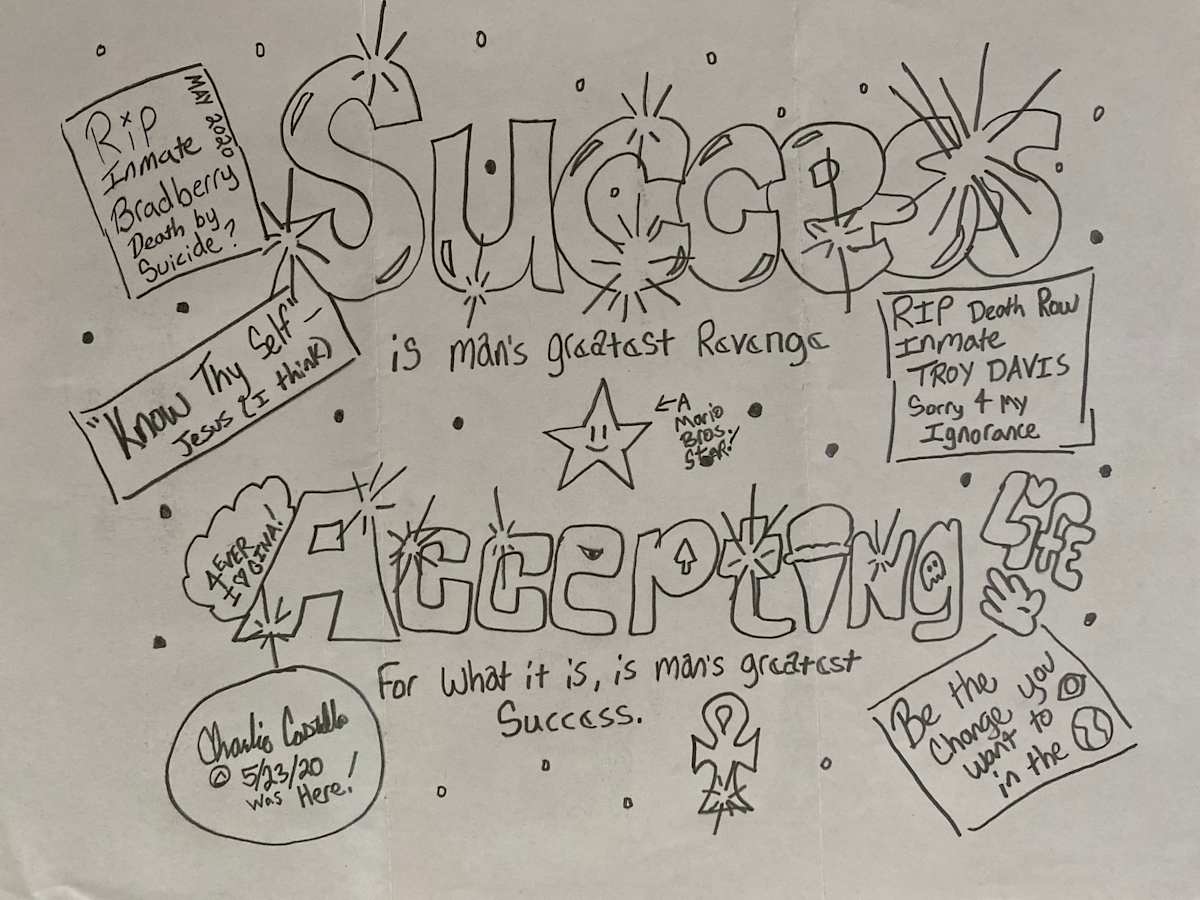 RiP
Inmate
Bradberry
Death by
Suicide?
MAY 2020
Success
is man's greatest Revenge
"Know Thy Self" –
Jesus (I think)
RIP Death Row
Inmate
TROY DAVIS
Sorry 4 My
Ignorance
←A
Mario
Bros.
STAR!
4EVER
I ♥ GINA!
Accepting
Life
For What it is, is man's greatest
Success.
Charlie Costello
5/23/20
was Here!
Be the
Change you
want to
in the